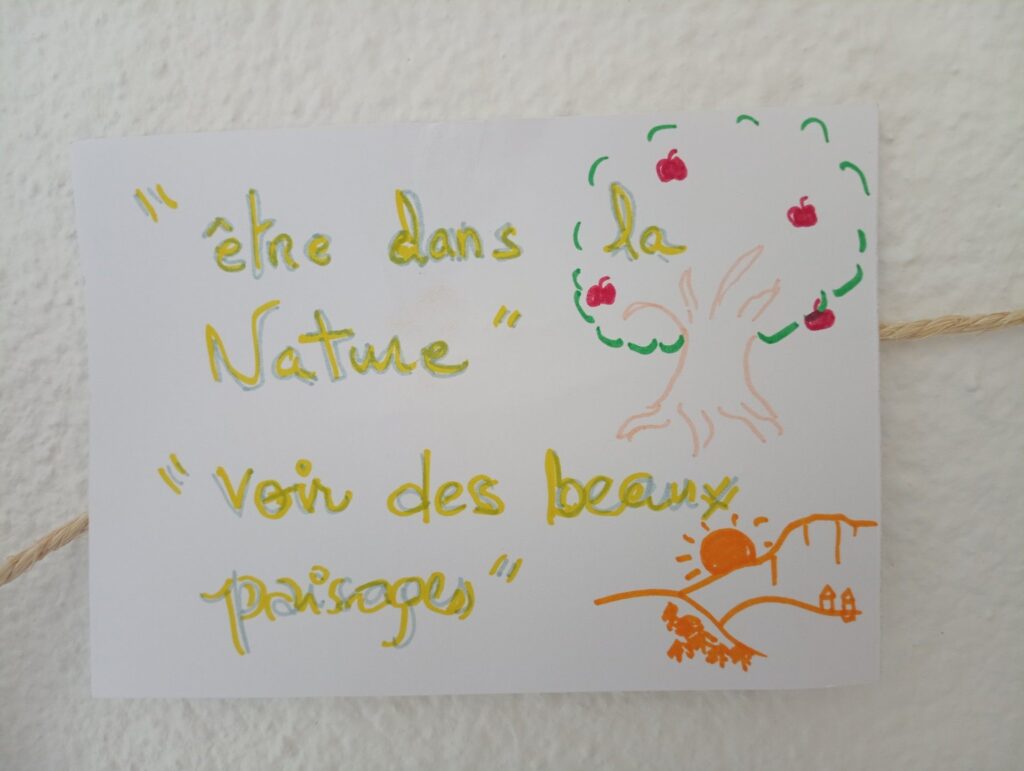 "être dans la
Nature"
"voir des beaux
paisages"